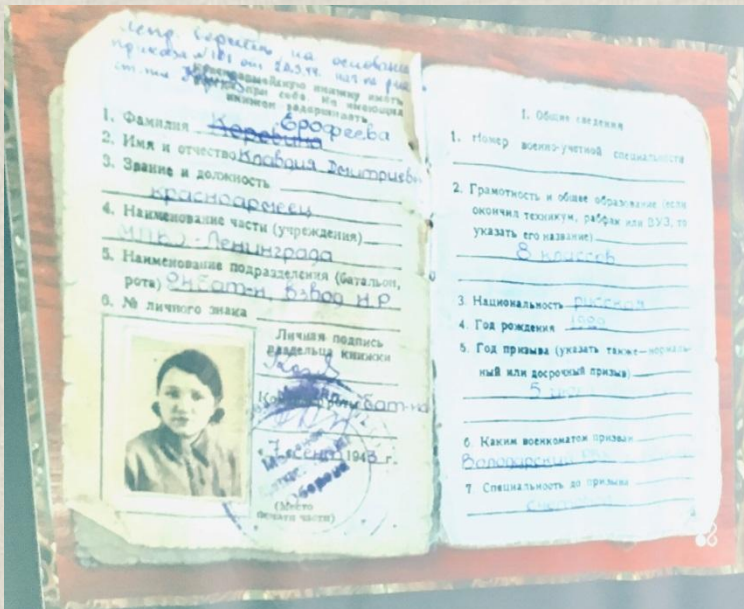 на основании
приказа №
Красноармейскую книжку иметь
всегда при себе. Не имеющих
книжек задерживать.
Ерофеева
1. Фамилия Коровина
2. Имя и отчество Клавдия Дмитриевн
3. Звание и должность
красноармеец
4. Наименование части (учреждения)
МПВО - Ленинграда
5. Наименование подразделения (батальон,
рота) взвод Н.Р
6. № личного знака
Личная подпись
владельца книжки
бат-на
7 1943 г.
(Место
печати части)
I. Общие сведения
1. Номер военно-учетной специальности
2. Грамотность и общее образование (если
окончил техникум, рабфак или ВУЗ, то
указать его название)
8 классов
3. Национальность русская
4. Год рождения
5. Год призыва (указать также—нормаль-
ный или досрочный призыв)
5
6 Каким военкоматом призван
Володарский
7 Специальность до призыва